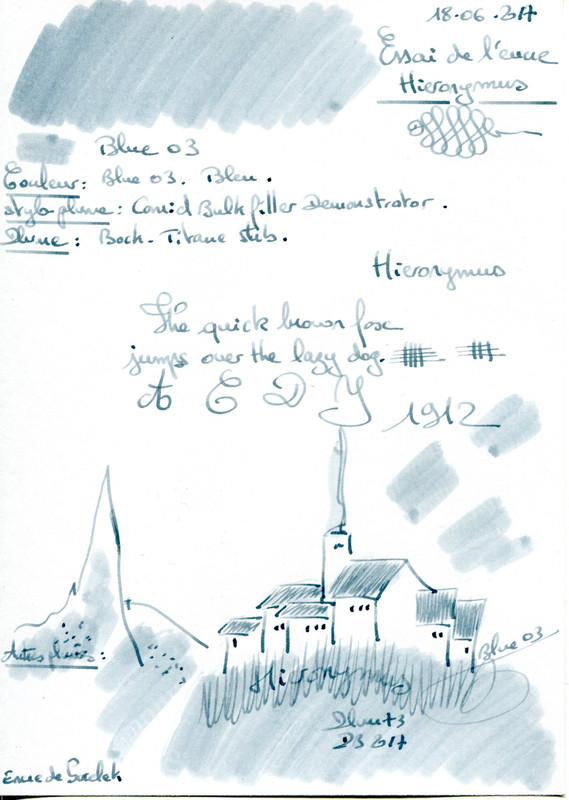 18.06.2017
Essai de l'encre
Hieronymus
Blue 03
Couleur: Blue 03. Bleu.
stylo-plume: Conid Bulkfiller Demonstrator.
Plume: Bock-Titane stub.
Hieronymus
The quick brown fox
jumps over the lazy dog.
A E D Y 1912
Autres plumes:
Blue 03
Hieronymus
Encre de